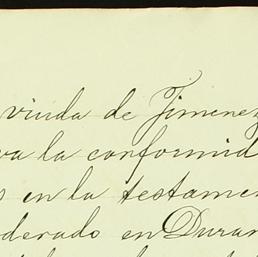 viuda de Jimenez
va la conformid
s en la testamen
oderado en Duran